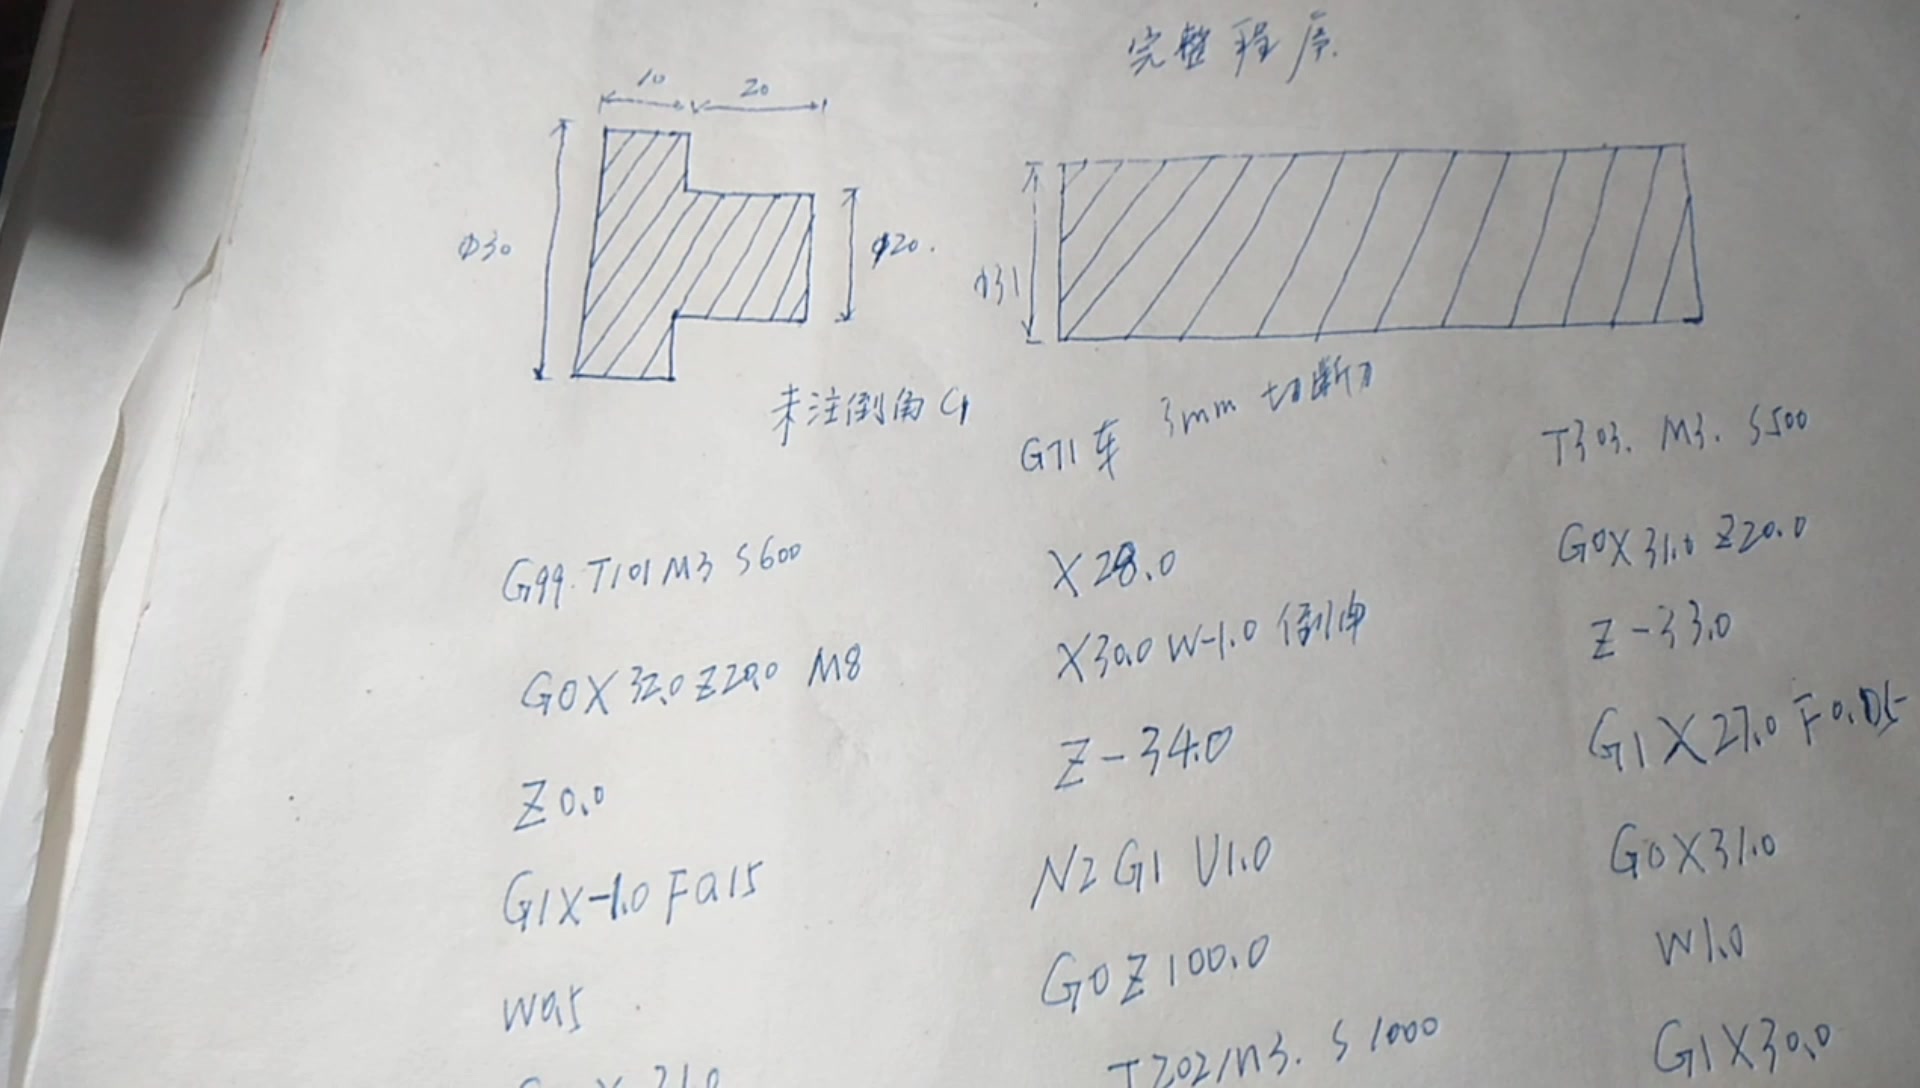 完整程序.
10
20
Φ30
Φ20.
Φ31
未注倒角C1
G71车
3mm 切断刀
G99. T101 M3 S600
G0X32.0 Z20.0 M8
Z0.0
G1X-1.0 F0.15
W0.5
X28.0
X30.0 W-1.0 倒角
Z-34.0
N2 G1 U1.0
G0 Z100.0
T202 M3. S1000
T303. M3. S500
G0X31.0 Z20.0
Z-33.0
G1X27.0 F0.05
G0X31.0
W1.0
G1X30.0